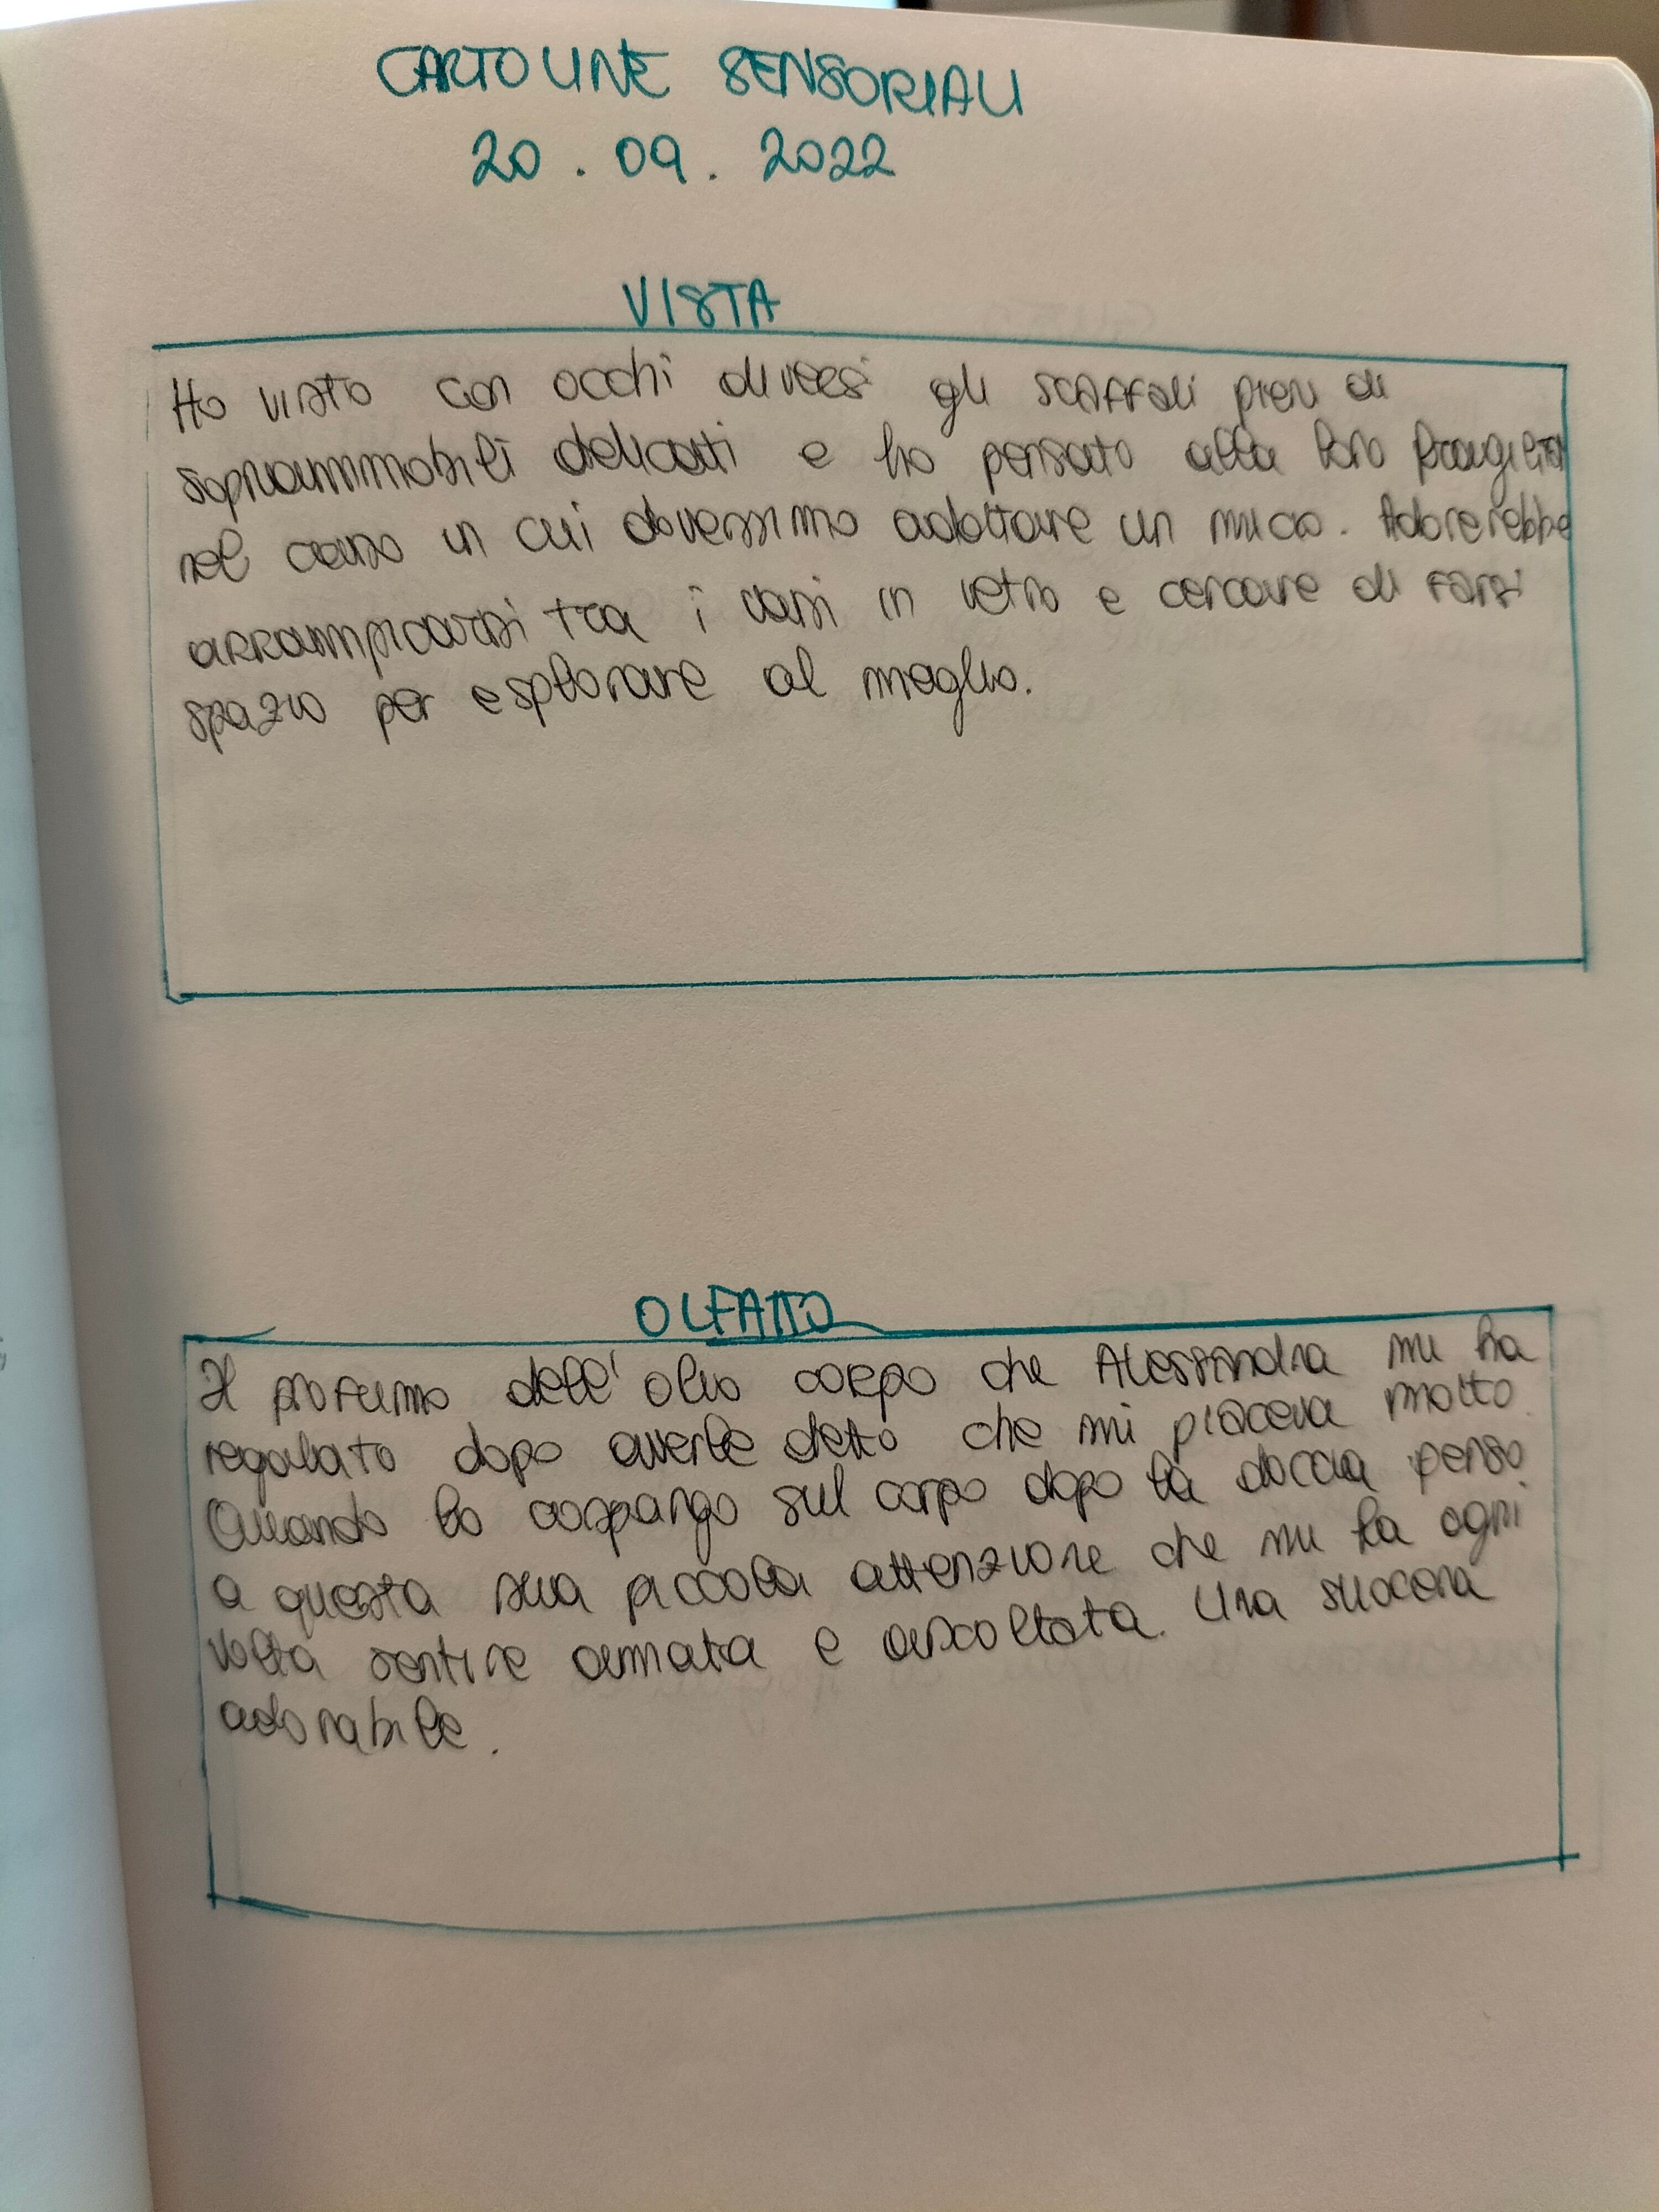 CARTOLINE SENSORIALI
20.09.2022
VISTA
Ho visto con occhi diversi gli scaffali pieni di
soprammobili delicati e ho pensato alla loro fragilità
nel caso in cui dovessimo adottare un micio. Adorerebbe
arrampicarsi tra i vasi in vetro e cercare di farsi
spazio per esplorare al meglio.
OLFATTO
Il profumo dell'olio corpo che Alessandra mi ha
regalato dopo averle detto che mi piaceva molto.
Quando lo cospargo sul corpo dopo la doccia penso
a questa sua piccola attenzione che mi fa ogni
volta sentire amata e ascoltata. Una suocera
adorabile.